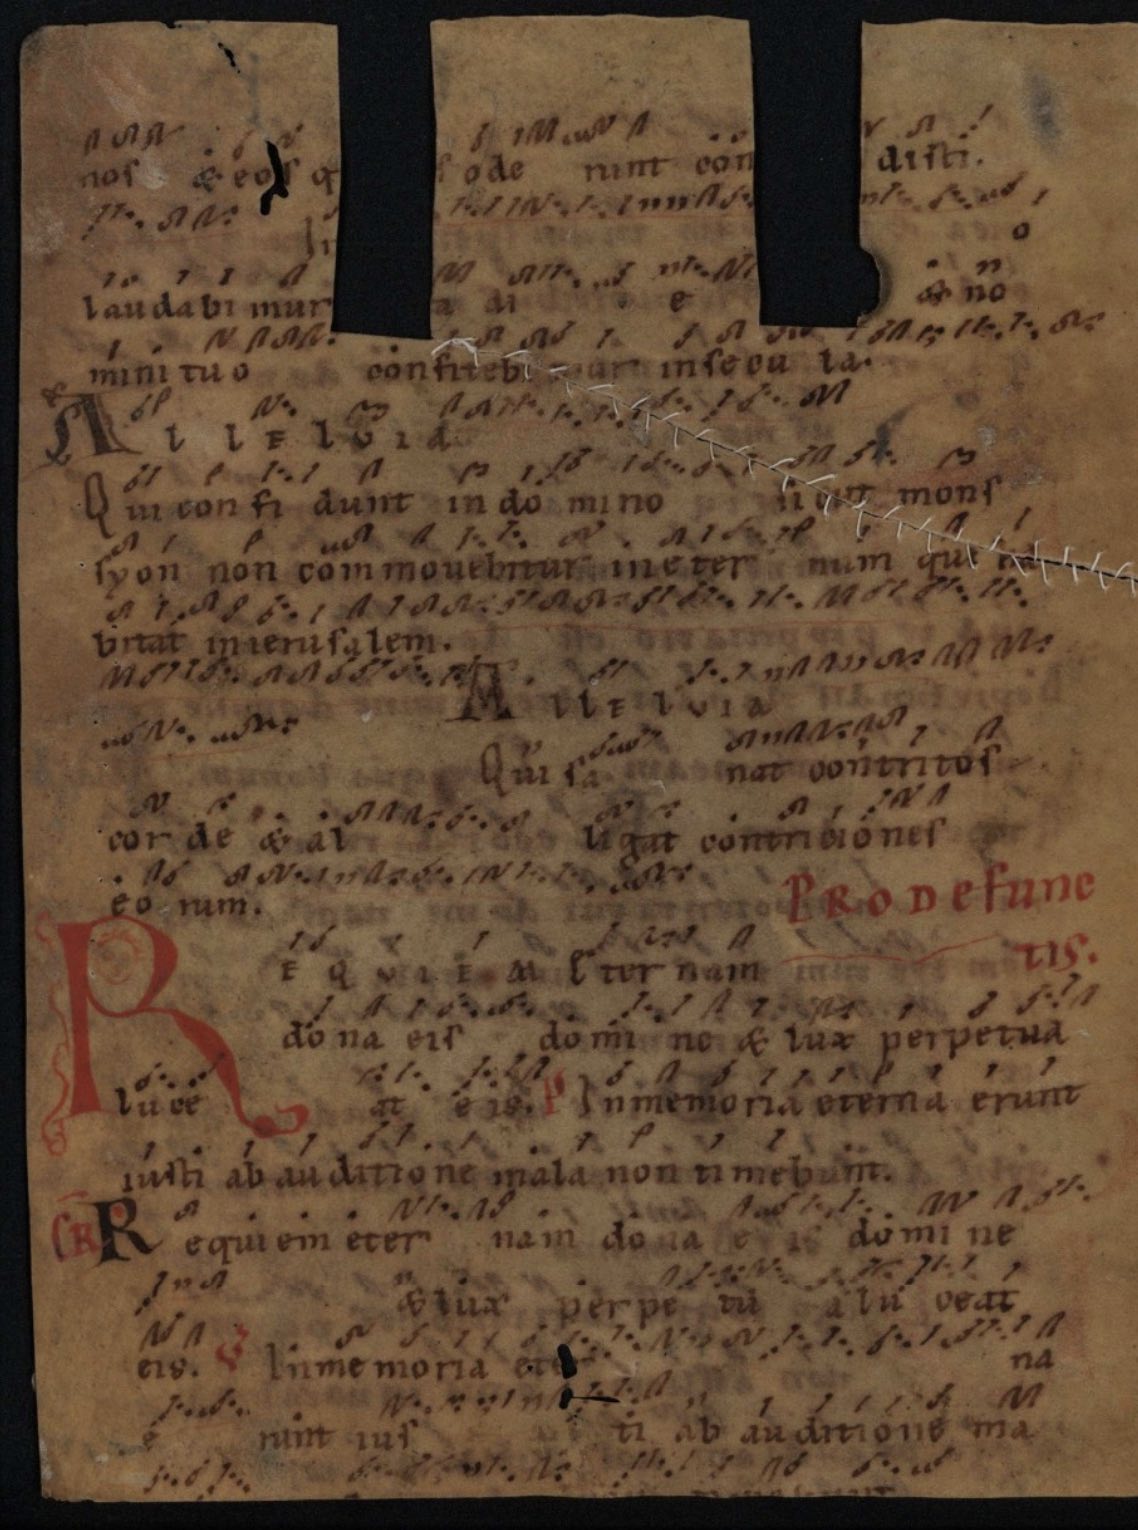 nos & eos q s ode runt con disti.
In o
laudabimur a di e & no
mini tuo confitebimur insecu la.
A l l E l V I A
Qui con fi dunt in do mino sicut mons
syon non commouebitur ineter num qui ha
bitat inierusalem.
A l l E l V I A
Qui sa nat contritos
cor de & al ligat contriciones
eo rum.
PRO DEfunc
tis.
R E Q V I E M Eter nam
do na eis domi ne & lux perpetua
lu ce at eis. P Inmemoria eterna erunt
iusti ab auditione mala non timebunt.
GR R equiem eter nam do na e is domi ne
& lux perpe tu a lu ceat
eis. V Inmemoria eter na
e runt ius ti ab auditione ma